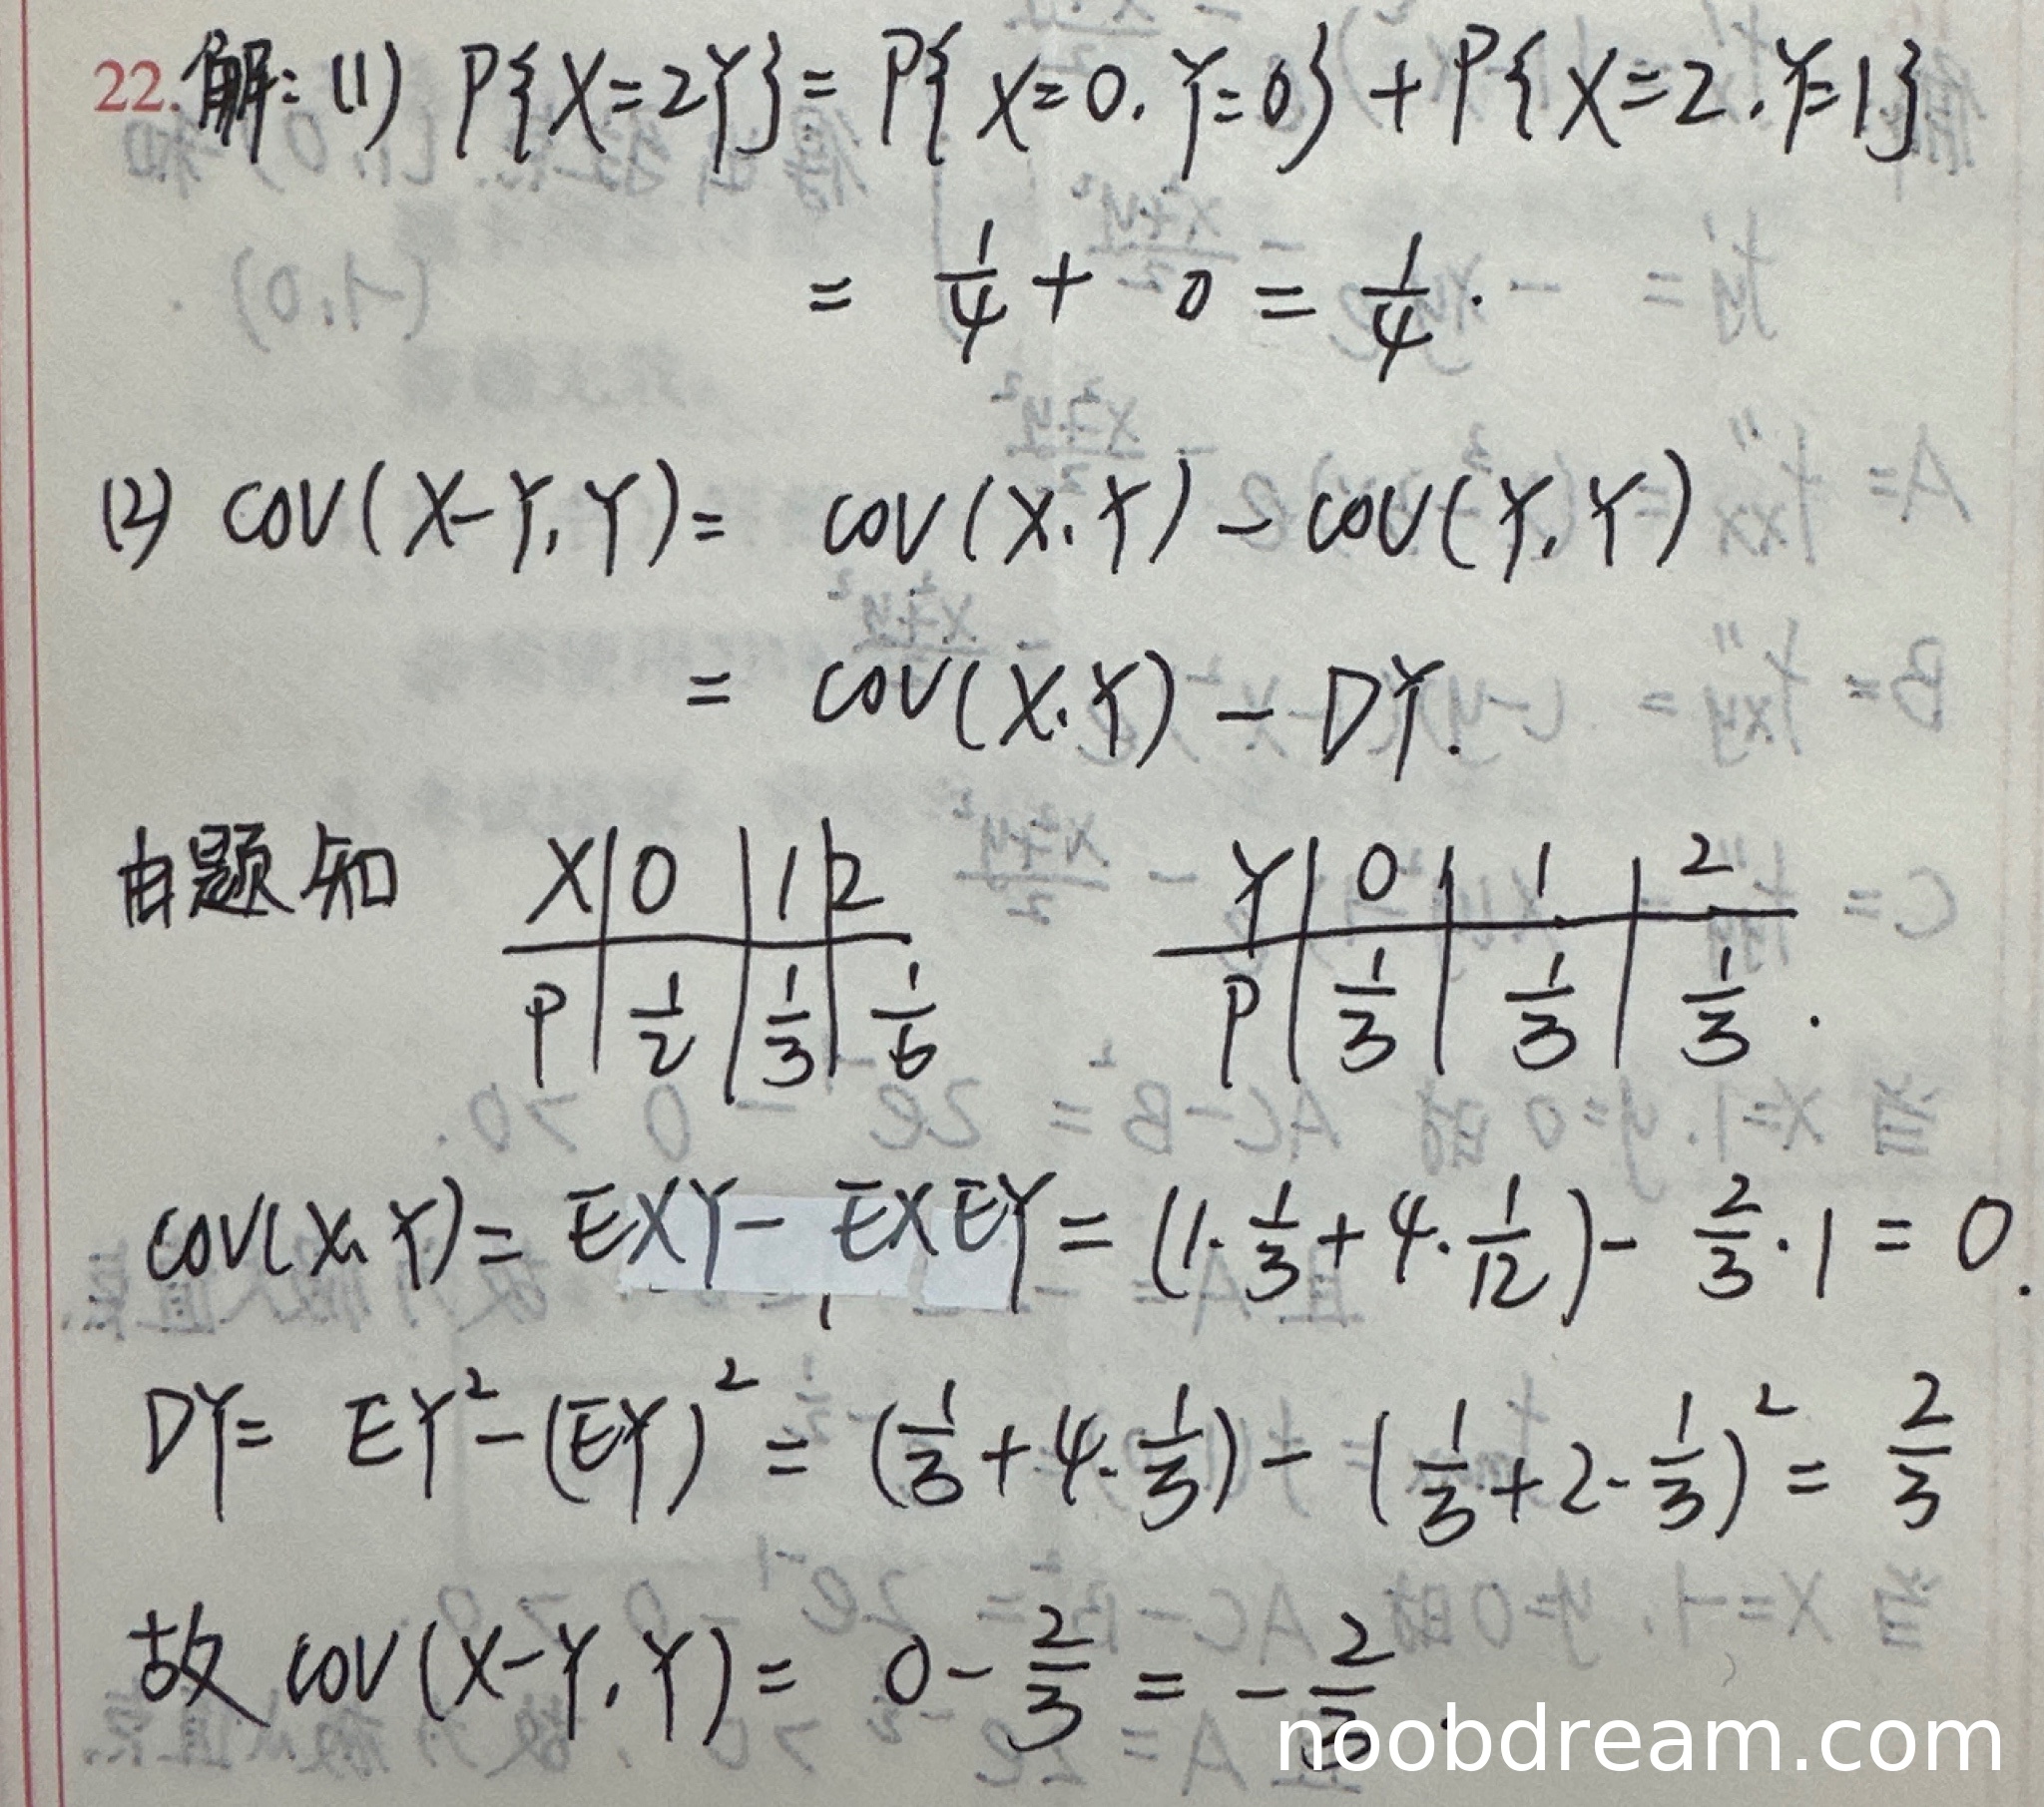 22. 解: (1) P{X=2Y} = P{X=0, Y=0} + P{X=2, Y=1}
= 1/4 + 0 = 1/4.
(2) cov(X-Y, Y) = cov(X, Y) - cov(Y, Y)
= cov(X, Y) - DY.
由题知 X | 0 | 1 | 2 Y | 0 | 1 | 2
P | 1/2 | 1/3 | 1/6 P | 1/3 | 1/3 | 1/3 .
cov(X, Y) = EXY - EXEY = (1·1/3 + 4·1/12) - 2/3·1 = 0.
DY = EY² - (EY)² = (1/3 + 4·1/3) - (1/3 + 2·1/3)² = 2/3
故 cov(X-Y, Y) = 0 - 2/3 = -2/3.
noobdream.com